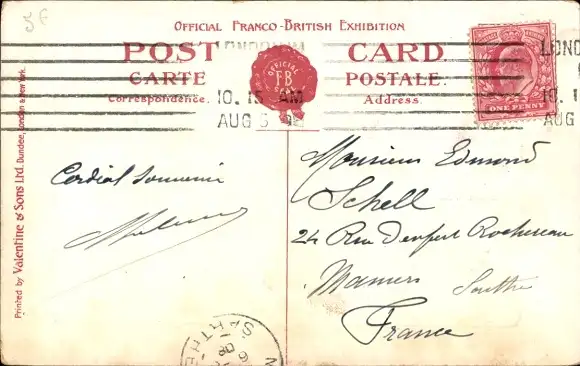 56
OFFICIAL FRANCO-BRITISH EXHIBITION
POST CARD
CARTE POSTALE
Correspondence. Address.
OFFICIAL
F.B
SEAL
LONDON
10.15 AM
AUG 5
LONDO
10.1
AUG
ONE PENNY
Cordial souvenir
Monsieur Edmond
Schell
24 Rue Denfert Rochereau
Mamers Sarthe
France
Printed by Valentine & Sons Ltd. Dundee, London & New York.
SARTHE